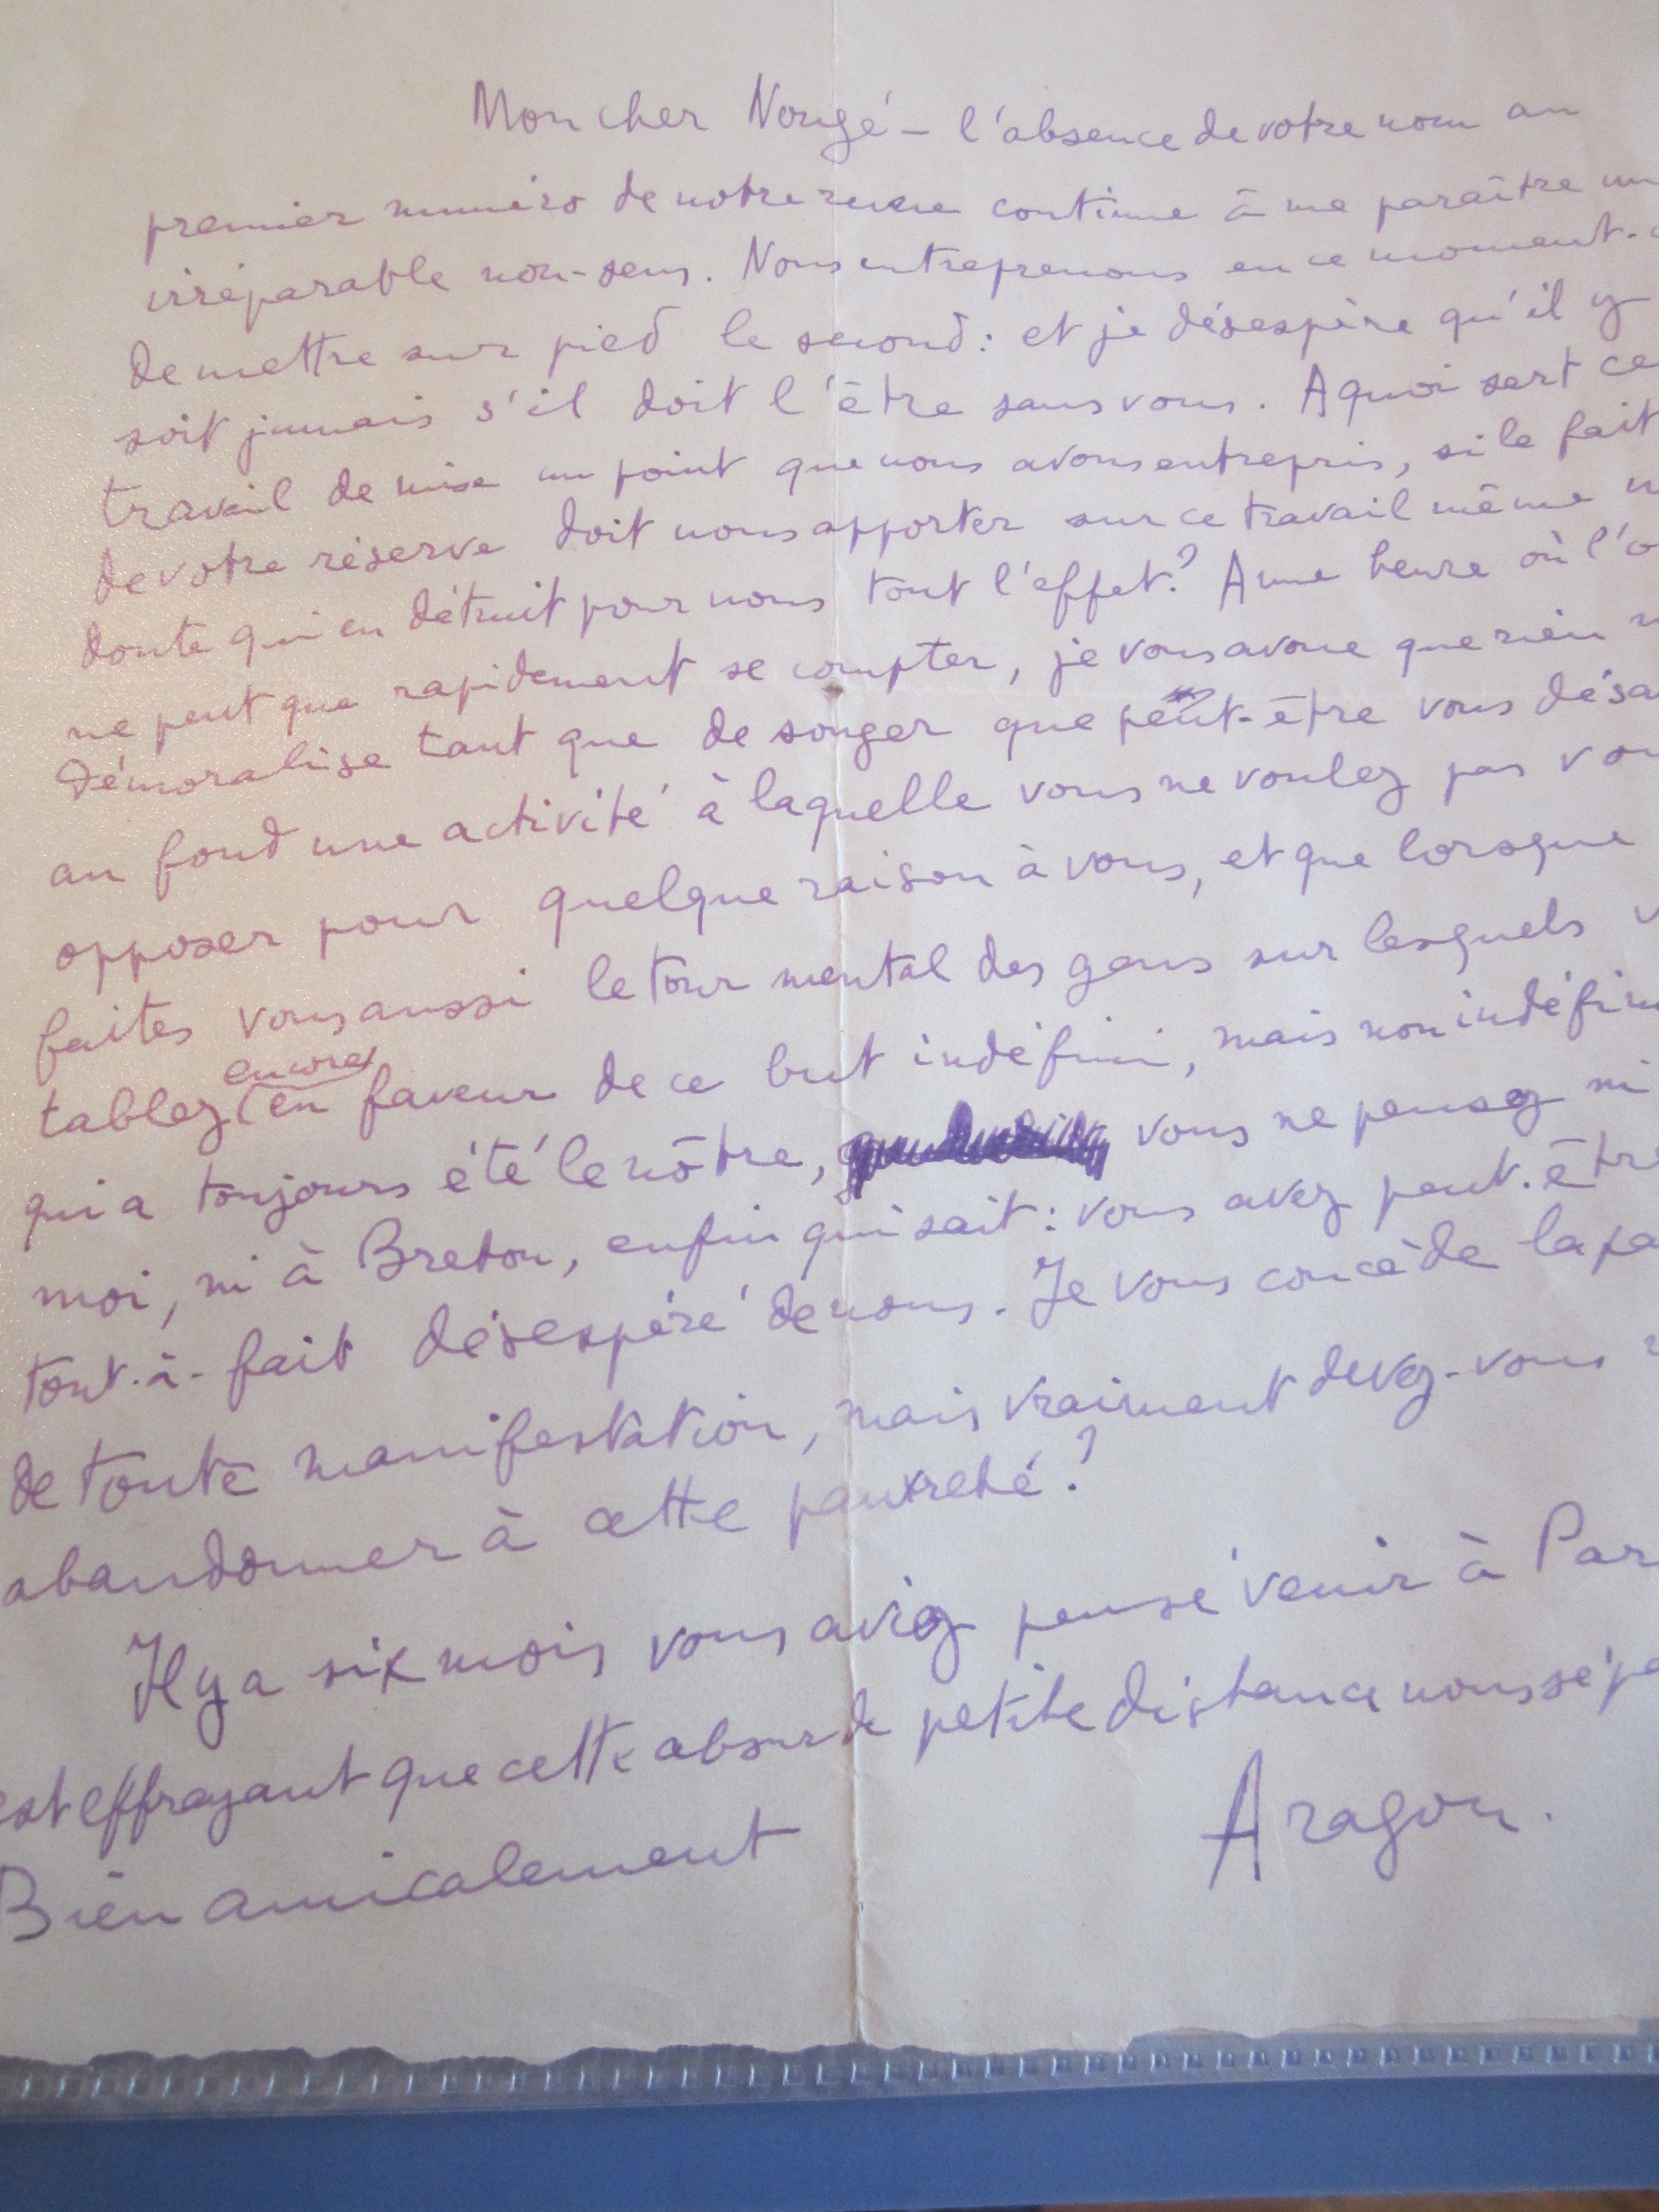 Mon cher Nougé – l'absence de votre nom au
premier numéro de notre revue continue à me paraître un
irréparable non-sens. Nous entreprenons en ce moment-
de mettre sur pied le second : et je désespère qu'il y
soit jamais s'il doit l'être sans vous. A quoi sert ce
travail de mise au point que nous avons entrepris, si le fait
de votre réserve doit nous apporter sur ce travail même
doute qui en détruit pour nous tout l'effet ? A une heure où l'o
ne peut que rapidement se compter, je vous avoue que rien
démoralise tant que de songer que peut-être vous désa
au fond une activité à laquelle vous ne voulez pas vou
opposer pour quelque raison à vous, et que lorsque
faites vous aussi le tour mental des gens sur lesquels
encore
tablez en faveur de ce but indéfini, mais non indéfini
qui a toujours été le nôtre, vous ne pensez ni
moi, ni à Breton, enfin qui sait : vous avez peut-être
tout-à-fait désespéré de nous. Je vous concède la pa
de toute manifestation, mais vraiment devez-vous
abandonner à cette pauvreté ?
Il y a six mois vous aviez pensé venir à Par
est effrayant que cette absurde petite distance nous sépa
Bien amicalement
Aragon.